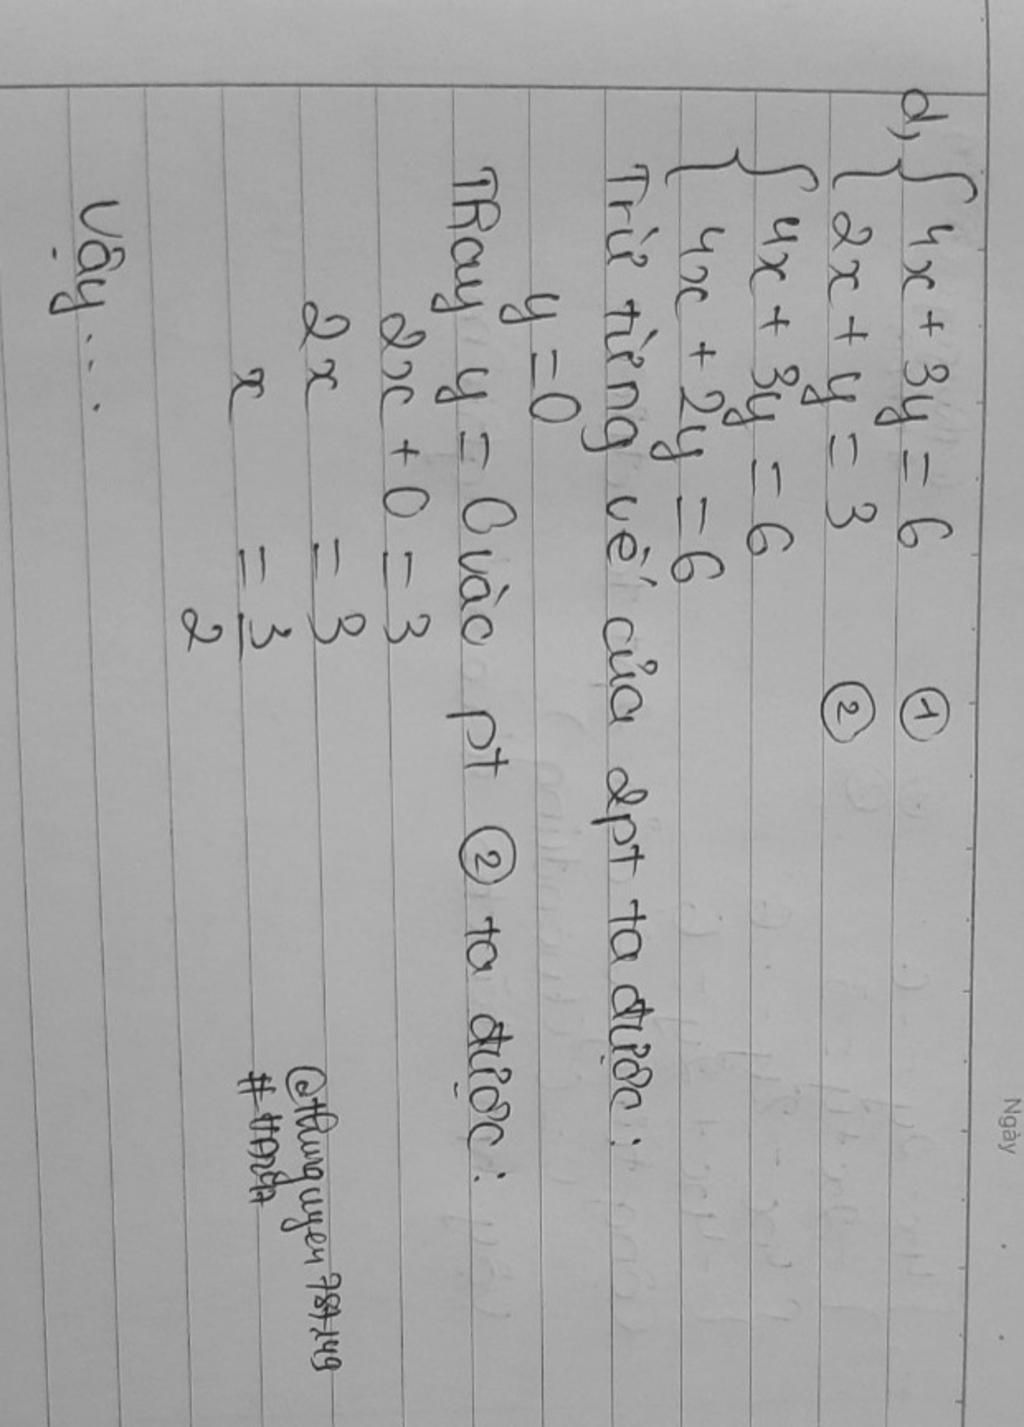 Ngày
d, { 4x + 3y = 6 ①
2x + y = 3 ②
{ 4x + 3y = 6
4x + 2y = 6
Trừ từng vế của 2pt ta được:
y = 0
Thay y = 0 vào pt ② ta được:
2x + 0 = 3
2x = 3
x = 3/2
Vậy...